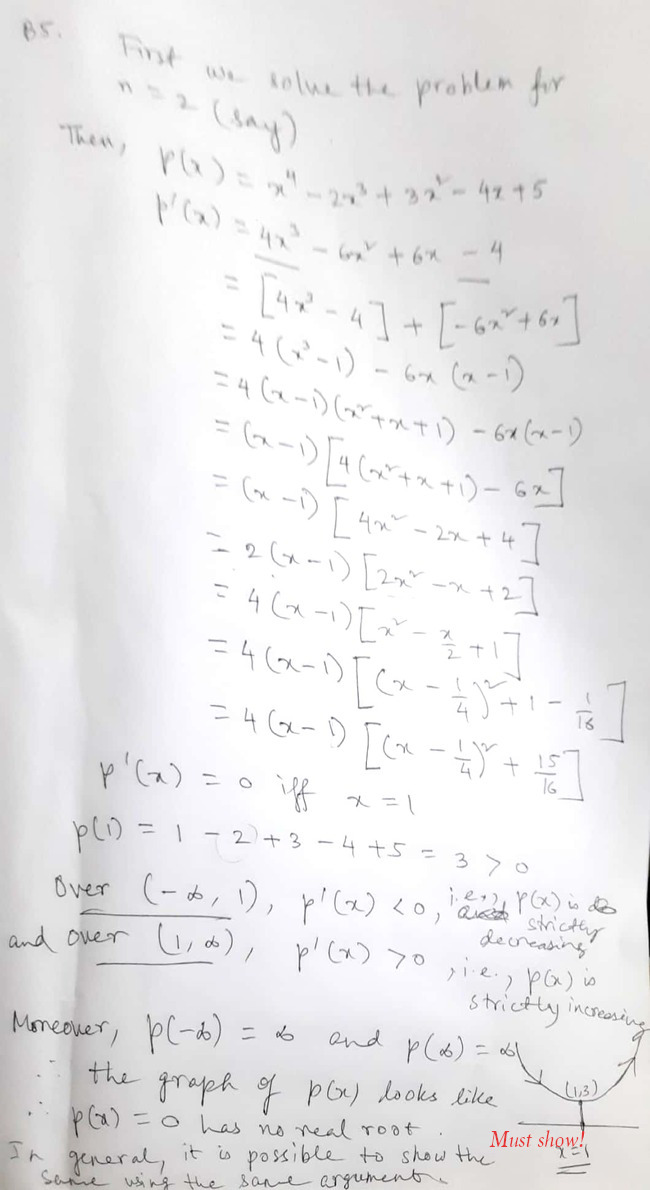 B5.
First we solve the problem for
n = 2 (say)
Then, p(x) = x⁴ − 2x³ + 3x² − 4x + 5
p'(x) = 4x³ − 6x² + 6x − 4
= [4x³ − 4] + [−6x² + 6x]
= 4(x³ − 1) − 6x (x − 1)
= 4(x − 1)(x² + x + 1) − 6x(x − 1)
= (x − 1)[4(x² + x + 1) − 6x]
= (x − 1)[4x² − 2x + 4]
= 2(x − 1)[2x² − x + 2]
= 4(x − 1)[x² − x/2 + 1]
= 4(x − 1)[(x − 1/4)² + 1 − 1/16]
= 4(x − 1)[(x − 1/4)² + 15/16]
p'(x) = 0 iff x = 1
p(1) = 1 − 2 + 3 − 4 + 5 = 3 > 0
Over (−∞, 1), p'(x) < 0, i.e., p(x) is
strictly
decreasing
and over (1, ∞), p'(x) > 0, i.e., p(x) is
strictly increasing
Moreover, p(−∞) = ∞ and p(∞) = ∞
∴ the graph of p(x) looks like
(1,3)
∴ p(x) = 0 has no real root.
x = 1
Must show!
In general, it is possible to show the
same using the same argument.